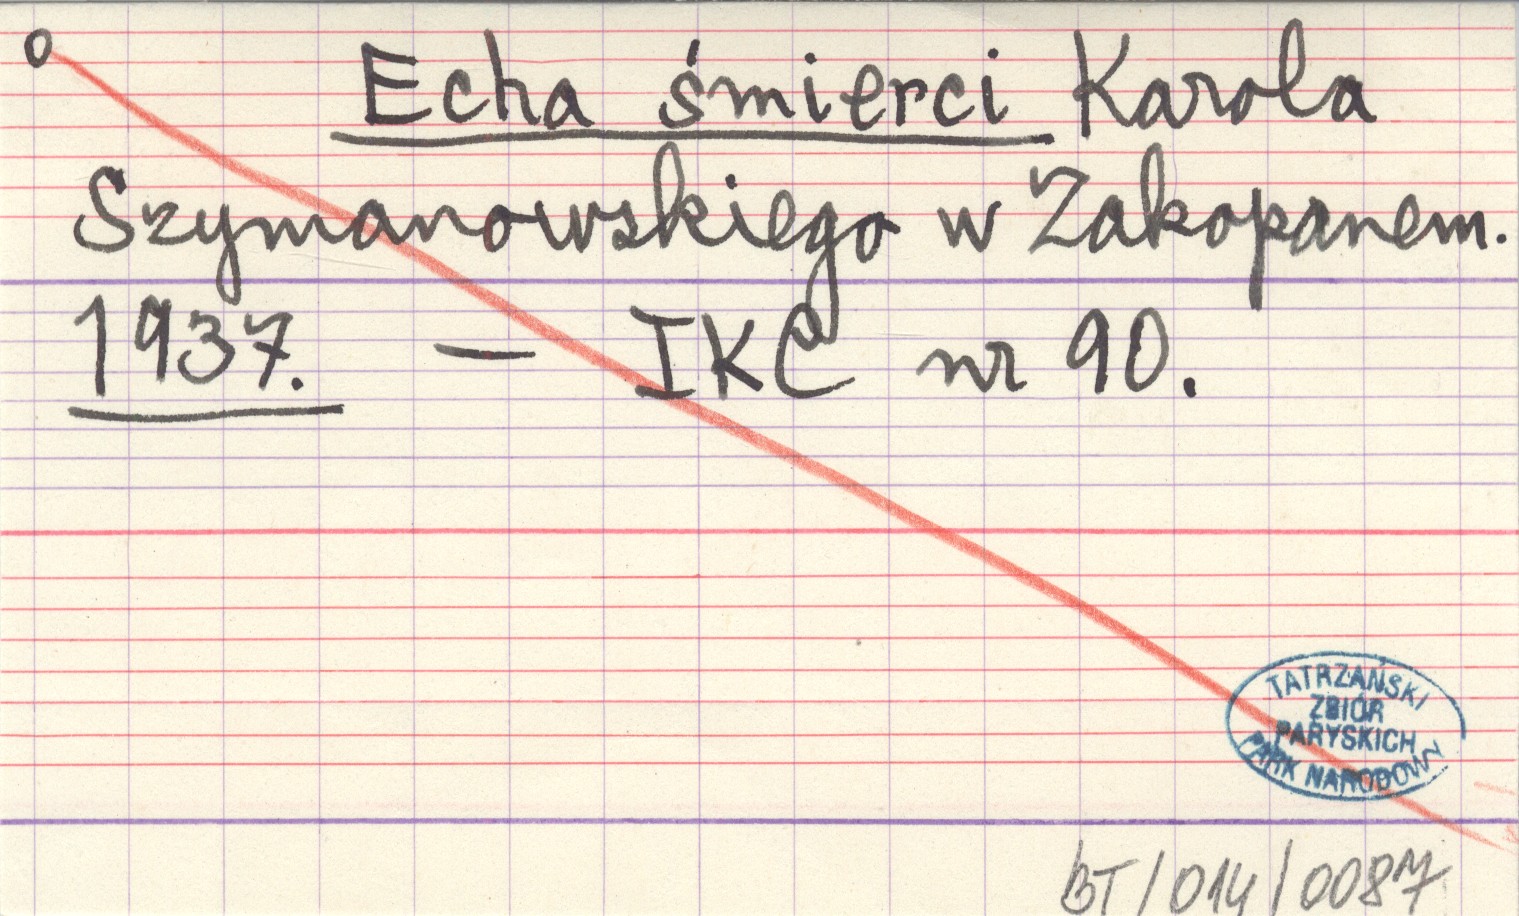 o
Echa śmierci Karola
Szymanowskiego w Zakopanem.
1937. — IKC nr 90.
TATRZAŃSKI
ZBIÓR
PARYSKICH
PARK NARODOWY
BT/014/0087